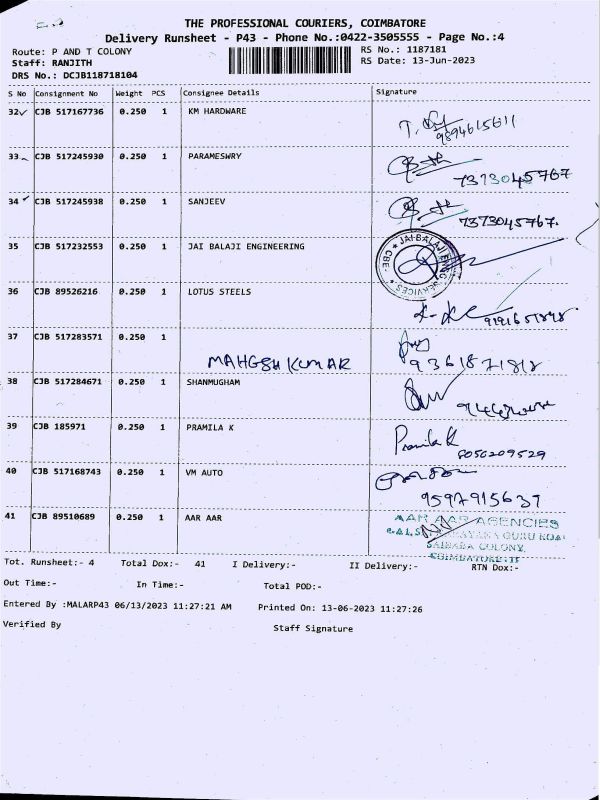 THE PROFESSIONAL COURIERS, COIMBATORE
Delivery Runsheet - P43 - Phone No.:0422-3505555 - Page No.:4
Route: P AND T COLONY RS No.: 1187181
Staff: RANJITH RS Date: 13-Jun-2023
DRS No.: DCJB118718104
S No Consignment No Weight PCS Consignee Details Signature
32 CJB 517167736 0.250 1 KM HARDWARE
9894615611
33 CJB 517245930 0.250 1 PARAMESWRY
7373045767
34 CJB 517245938 0.250 1 SANJEEV
7373045767.
35 CJB 517232553 0.250 1 JAI BALAJI ENGINEERING
JAI BALAJI ENGG SERVICES CBE.
36 CJB 89526216 0.250 1 LOTUS STEELS
37 CJB 517283571 0.250 1
MAHGSH KUMAR
38 CJB 517284671 0.250 1 SHANMUGHAM
39 CJB 185971 0.250 1 PRAMILA K
Pramila K
8056209529
40 CJB 517168743 0.250 1 VM AUTO
9597915637
41 CJB 89510689 0.250 1 AAR AAR
AAR AAR AGENCIES
GURU ROAD
SAIBABA COLONY,
COIMBATORE-11
Tot. Runsheet:- 4 Total Dox:- 41 I Delivery:- II Delivery:- RTN Dox:-
Out Time:- In Time:- Total POD:-
Entered By :MALARP43 06/13/2023 11:27:21 AM Printed On: 13-06-2023 11:27:26
Verified By Staff Signature